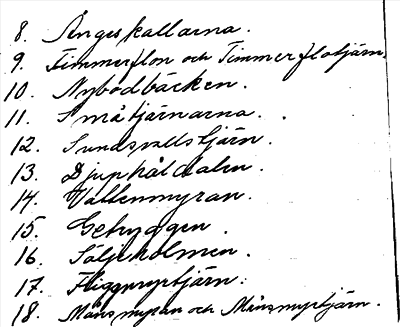 8. Ångeskallarna.
9. Timmerflon och Timmerflotjärn.
10. Nybodbäcken.
11. Småtjärnarna.
12. Sundsvallstjärn.
13. Djuphåldalen.
14. Vallenmyran.
15. Getryggen.
16. Säljeholmen.
17. Fliggmyrtjärn.
18. Månsmyran och Månsmyrtjärn.